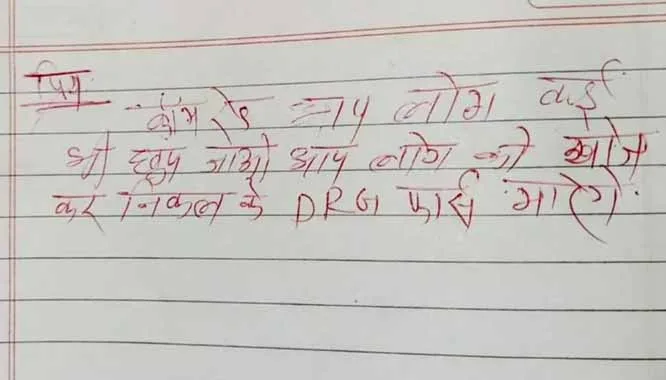 प्रिय
कॉमरेड आप लोग कई
भी छुप जाओ आप लोग को खोज
कर निकल के DRG फार्स मारेगे.